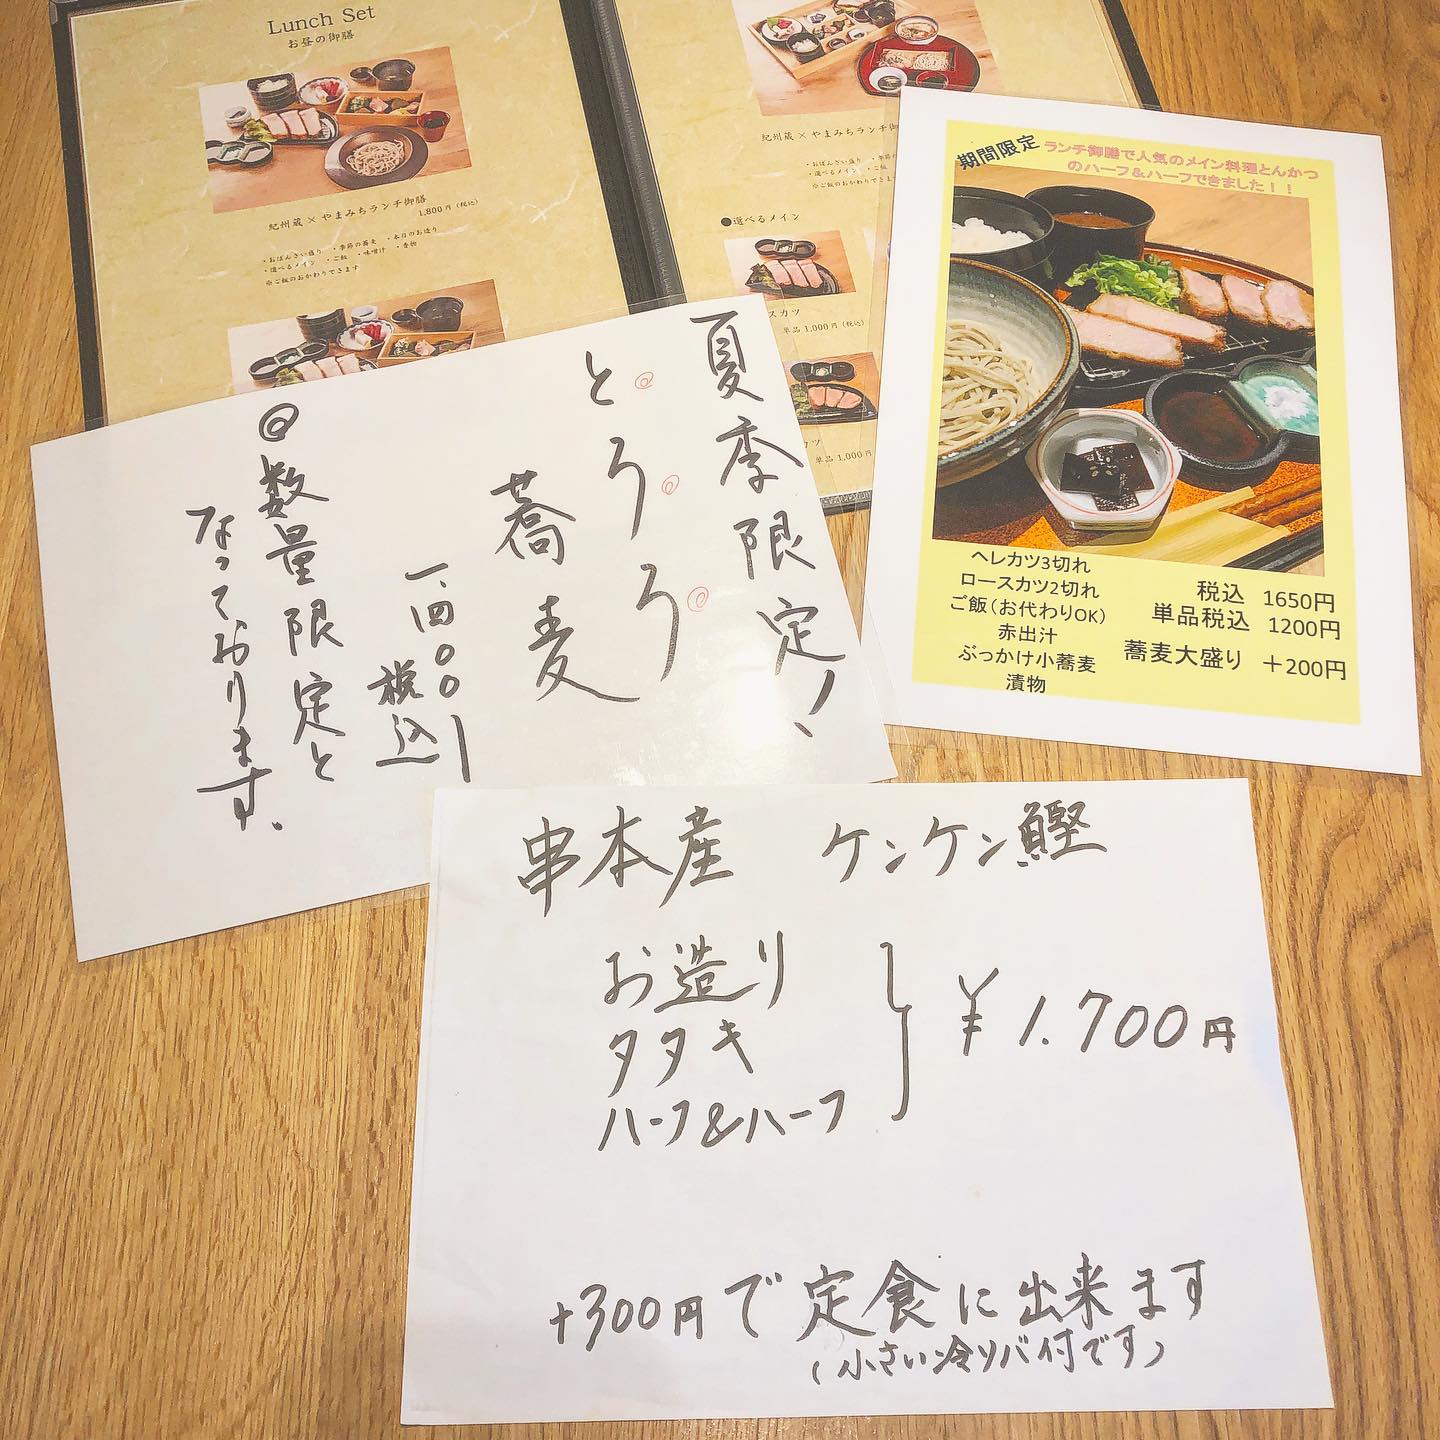 Lunch Set
お昼の御膳
紀州蔵×やまみちランチ御膳
1,800円（税込）
・おばんざい盛り ・季節の蕎麦 ・本日のお造り
・選べるメイン ・ご飯 ・味噌汁 ・香物
※ご飯のおかわりできます
紀州蔵×やまみちランチ御
・おばんざい盛り ・季節の
・選べるメイン ・ご飯
※ご飯のおかわりできま
●選べるメイン
スカツ
単品 1,000円（税込）
カツ
単品 1,000円
期間限定
ランチ御膳で人気のメイン料理とんかつ
のハーフ＆ハーフできました！！
ヘレカツ3切れ
ロースカツ2切れ
ご飯（お代わりOK）
赤出汁
ぶっかけ小蕎麦
漬物
税込 1650円
単品税込 1200円
蕎麦大盛り ＋200円
夏季限定!、
とろろ
蕎麦
一、四〇〇ー
税込
@数量限定と
なっております。
串本産 ケンケン鰹
お造り
タタキ
ハーフ&ハーフ
¥1.700円
+300円で定食に出来ます
(小さい冷ソバ付です)